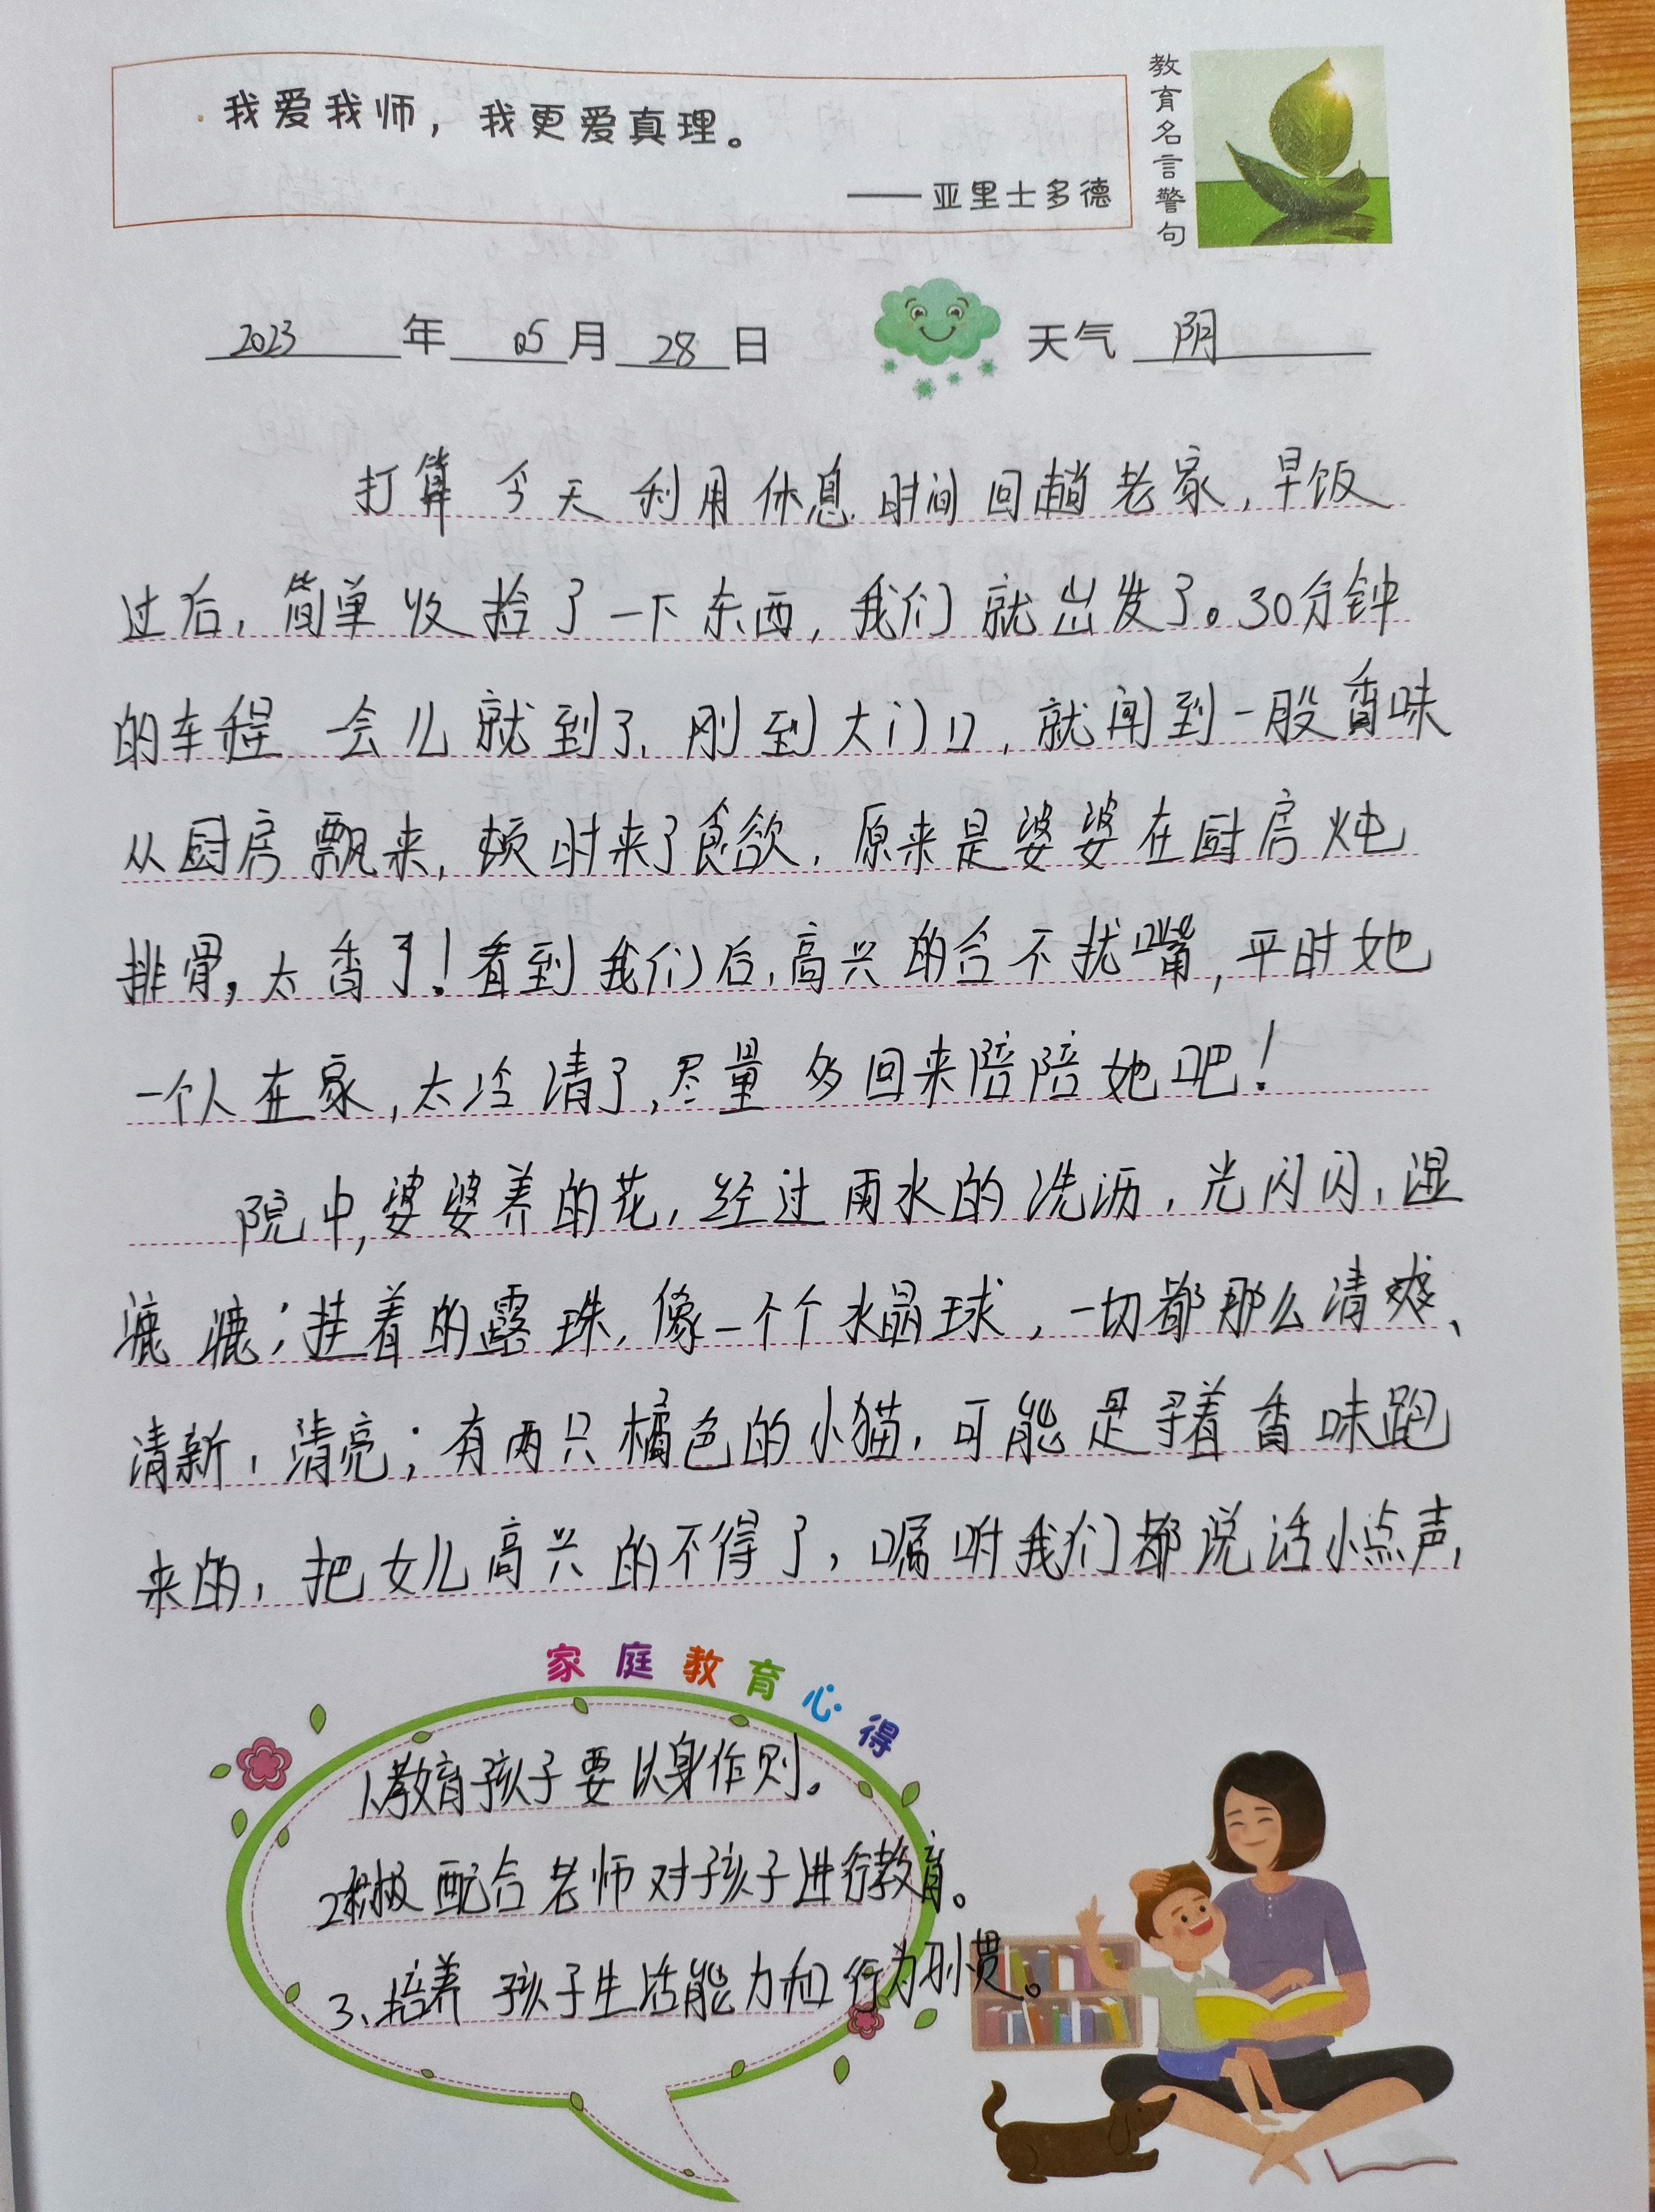 我爱我师，我更爱真理。
——亚里士多德
教育名言警句
2023年05月28日 天气 阴
打算今天利用休息时间回趟老家，早饭
过后，简单收捡了一下东西，我们就出发了。30分钟
的车程一会儿就到了，刚到大门口，就闻到一股香味
从厨房飘来，顿时来了食欲，原来是婆婆在厨房炖
排骨，太香了！看到我们后，高兴的合不扰嘴，平时她
一个人在家，太冷清了，尽量多回来陪陪她吧！
院中，婆婆养的花，经过雨水的洗沥，光闪闪，湿
漉漉；挂着的露珠，像一个个水晶球，一切都那么清爽、
清新，清亮；有两只橘色的小猫，可能是寻着香味跑
来的，把女儿高兴的不得了，嘱咐我们都说话小点声，
家庭教育心得
1.教育孩子要以身作则。
2.积极配合老师对孩子进行教育。
3、培养孩子生活能力和行为习惯。